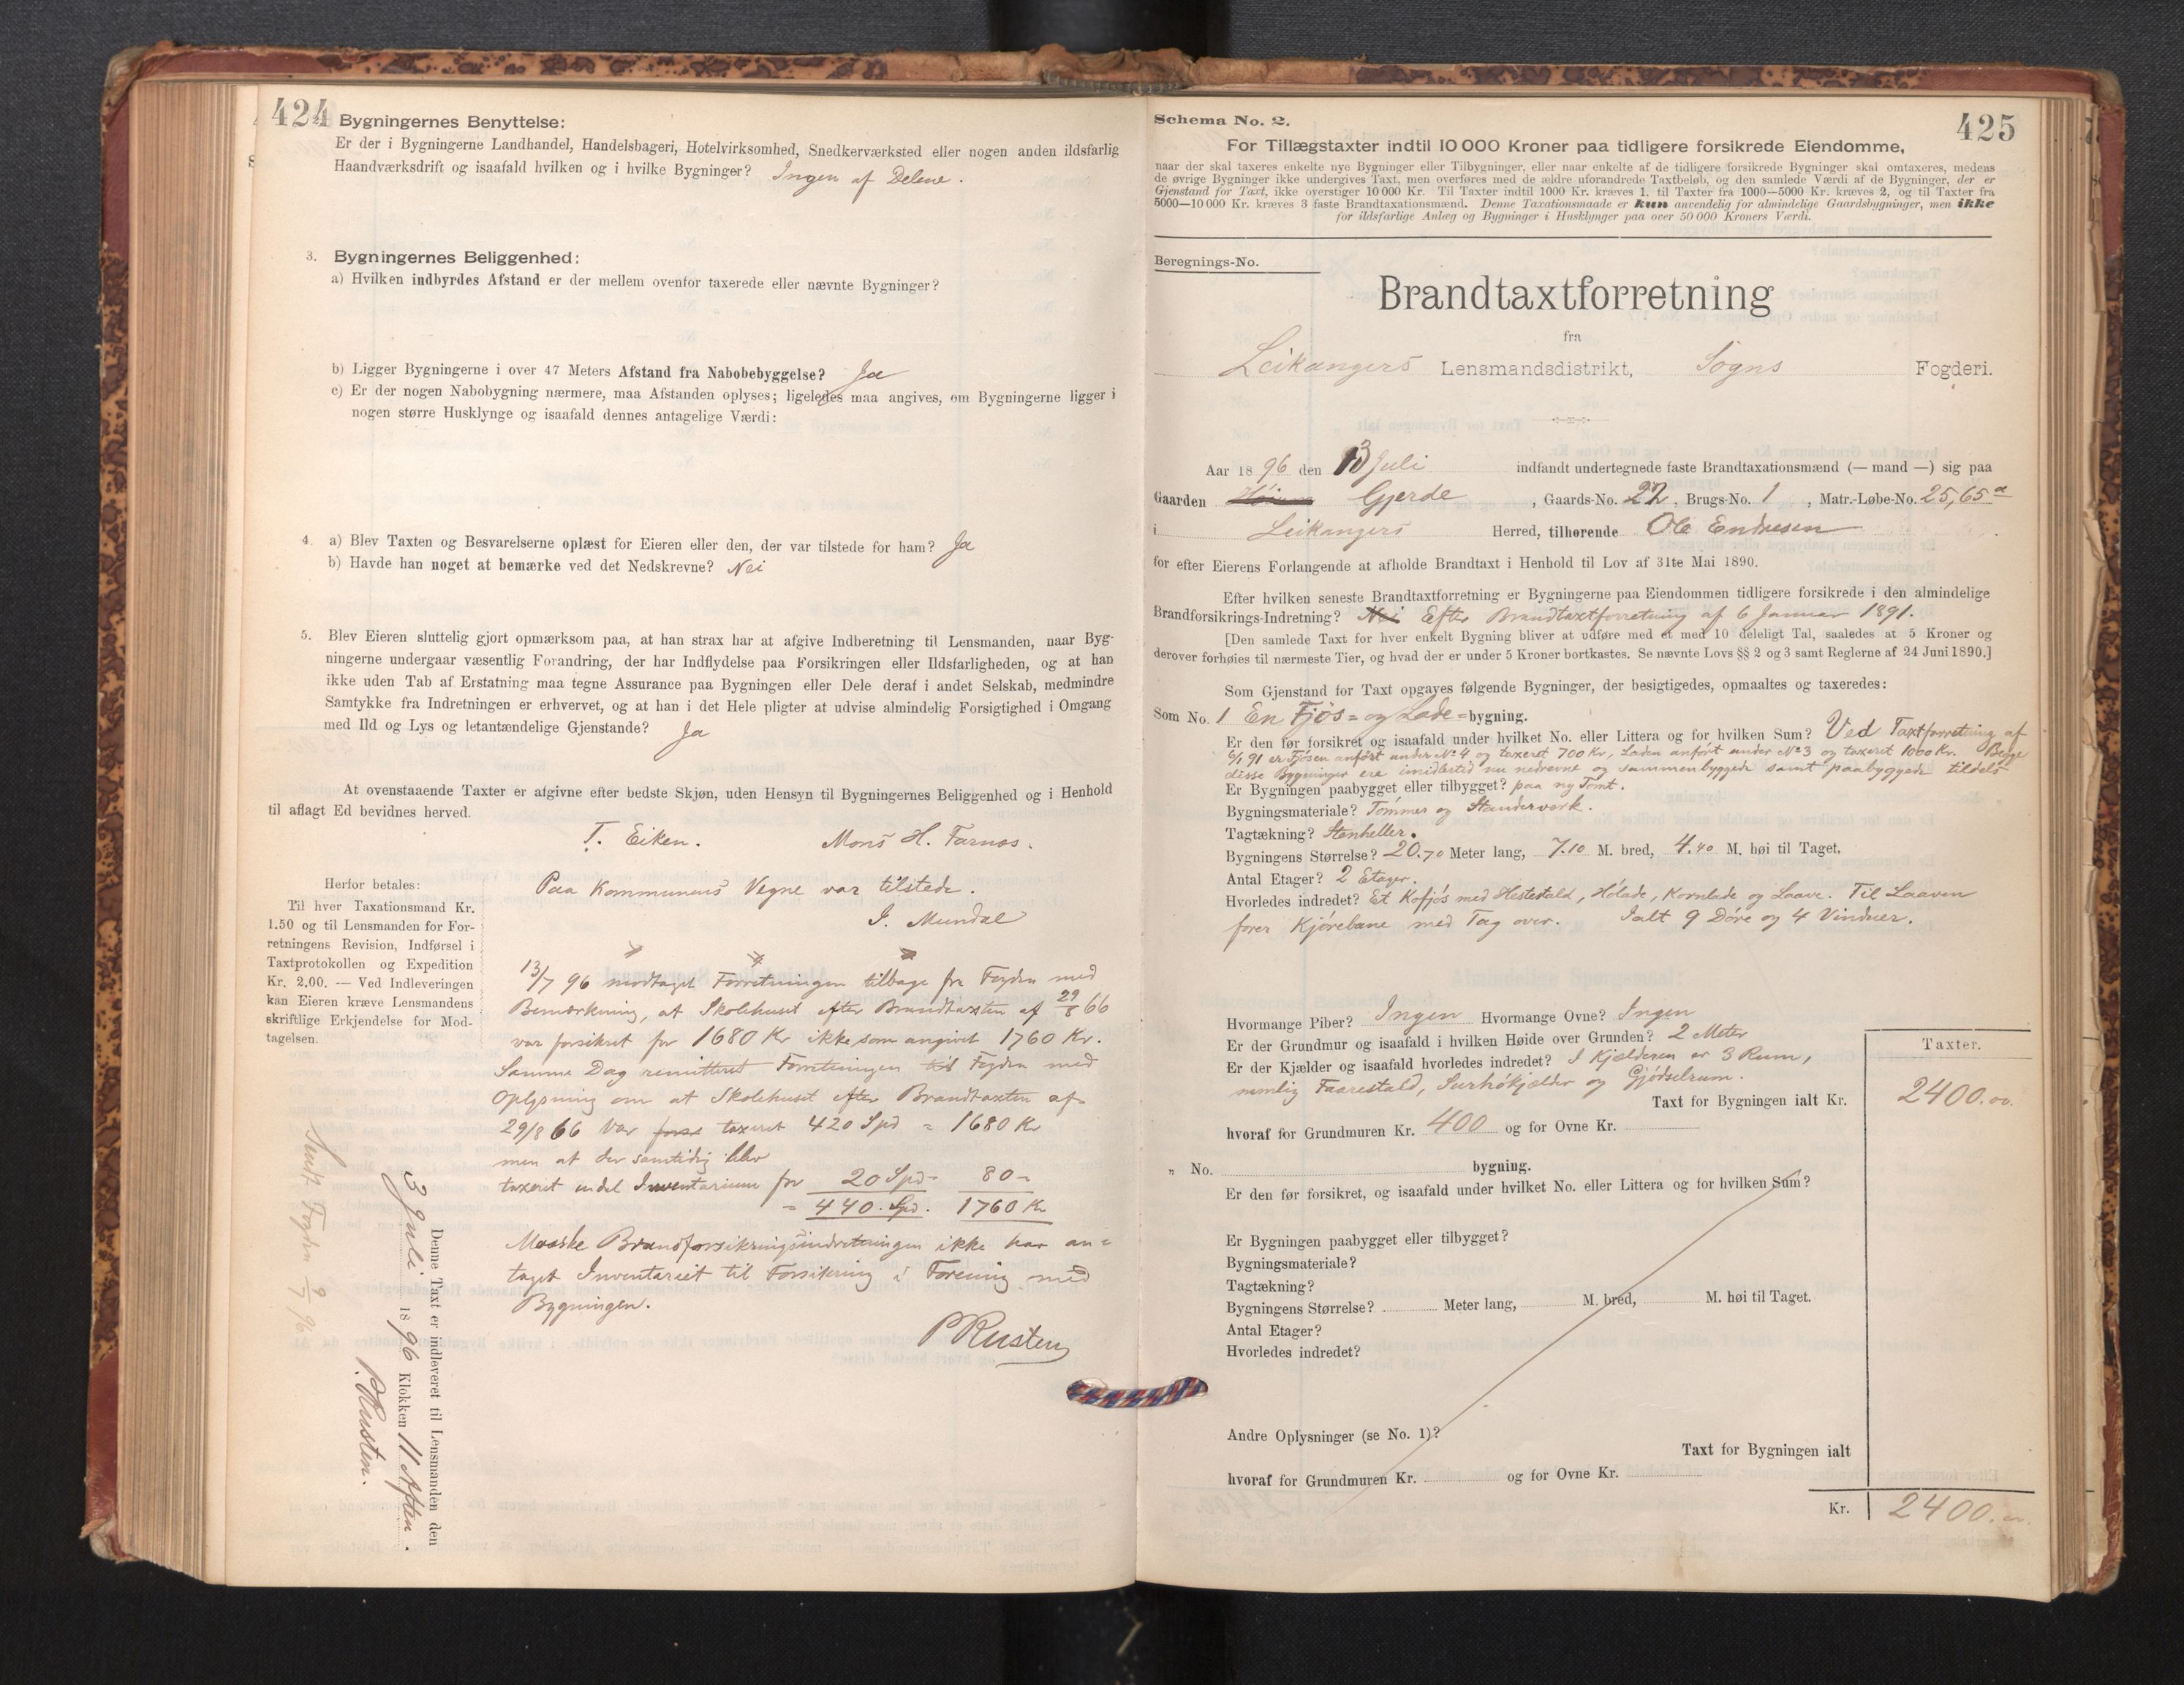 424
Bygningernes Benyttelse:
Er der i Bygningerne Landhandel, Handelsbageri, Hotelvirksomhed, Snedkerværksted eller nogen anden ildsfarlig
Haandværksdrift og isaafald hvilken og i hvilke Bygninger? Ingen af Delene.
3. Bygningernes Beliggenhed:
a) Hvilken indbyrdes Afstand er der mellem ovenfor taxerede eller nævnte Bygninger?
b) Ligger Bygningerne i over 47 Meters Afstand fra Nabobebyggelse? Ja
c) Er der nogen Nabobygning nærmere, maa Afstanden oplyses; ligeledes maa angives, om Bygningerne ligger i
nogen større Husklynge og isaafald dennes antagelige Værdi:
4. a) Blev Taxten og Besvarelserne oplæst for Eieren eller den, der var tilstede for ham? Ja
b) Havde han noget at bemærke ved det Nedskrevne? Nei
5. Blev Eieren sluttelig gjort opmærksom paa, at han strax har at afgive Indberetning til Lensmanden, naar Byg-
ningerne undergaar væsentlig Forandring, der har Indflydelse paa Forsikringen eller Ildsfarligheden, og at han
ikke uden Tab af Erstatning maa tegne Assurance paa Bygningen eller Dele deraf i andet Selskab, medmindre
Samtykke fra Indretningen er erhvervet, og at han i det Hele pligter at udvise almindelig Forsigtighed i Omgang
med Ild og Lys og letantændelige Gjenstande? Ja
At ovenstaaende Taxter er afgivne efter bedste Skjøn, uden Hensyn til Bygningernes Beliggenhed og i Henhold
til aflagt Ed bevidnes herved.
T. Eiken. Mons H. Farnæs.
Paa Kommunens Vegne var tilstede.
I. Mundal
Herfor betales:
Til hver Taxationsmand Kr.
1.50 og til Lensmanden for For-
retningens Revision, Indførsel i
Taxtprotokollen og Expedition
Kr. 2.00. — Ved Indleveringen
kan Eieren kræve Lensmandens
skriftlige Erkjendelse for Mod-
tagelsen.
13/7 96 modtaget Forretningen tilbage fra Fogden med
Bemærkning, at Skolehuset efter Brandtaxten af 29/8 66
var forsikret for 1680 Kr ikke, som angivet 1760 Kr.
Samme Dag remitteret Forretningen til Fogden med
Oplysning om at Skolehuset efter Brandtaxten af
29/8 66 var taxeret 420 Spd = 1680 Kr
men at der samtidig blev
taxeret endel Inventarium for 20 Spd = 80 -
= 440. Spd. 1760 Kr
Maaske Brandforsikringsindretningen ikke har an=
taget Inventariet til Forsikring i Forening med
Bygningen.
P Rusten
Denne Taxt er indleveret til Lensmanden den
3 Juli 1896 Klokken 11 Aften.
P. Rusten.
Sendt Fogden 9/7 96
425
Schema No. 2.
For Tillægstaxter indtil 10 000 Kroner paa tidligere forsikrede Eiendomme,
naar der skal taxeres enkelte nye Bygninger eller Tilbygninger, eller naar enkelte af de tidligere forsikrede Bygninger skal omtaxeres, medens
de øvrige Bygninger ikke undergives Taxt, men overføres med de ældre uforandrede Taxtbeløb, og den samlede Værdi af de Bygninger, der er
Gjenstand for Taxt, ikke overstiger 10 000 Kr. Til Taxter indtil 1000 Kr. kræves 1, til Taxter fra 1000—5000 Kr. kræves 2, og til Taxter fra
5000—10 000 Kr. kræves 3 faste Brandtaxationsmænd. Denne Taxationsmaade er kun anvendelig for almindelige Gaardsbygninger, men ikke
for ildsfarlige Anlæg og Bygninger i Husklynger paa over 50 000 Kroners Værdi.
Beregnings-No.
Brandtaxtforretning
fra
Leikangers Lensmandsdistrikt, Sogns Fogderi.
Aar 1896 den 13 Juli indfandt undertegnede faste Brandtaxationsmænd (— mand —) sig paa
Gaarden Gjerde, Gaards-No. 27, Brugs-No. 1, Matr.-Løbe-No. 25,65 a
i Leikangers Herred, tilhørende Ole Endresen
for efter Eierens Forlangende at afholde Brandtaxt i Henhold til Lov af 31te Mai 1890.
Efter hvilken seneste Brandtaxtforretning er Bygningerne paa Eiendommen tidligere forsikrede i den almindelige
Brandforsikrings-Indretning? Nei Efter Brandtaxtforretning af 6 Januar 1891.
[Den samlede Taxt for hver enkelt Bygning bliver at udføre med et med 10 deleligt Tal, saaledes at 5 Kroner og
derover forhøies til nærmeste Tier, og hvad der er under 5 Kroner bortkastes. Se nævnte Lovs §§ 2 og 3 samt Reglerne af 24 Juni 1890.]
Som Gjenstand for Taxt opgaves følgende Bygninger, der besigtigedes, opmaaltes og taxeredes:
Som No. 1 En Fjøs= og Lade=bygning.
Er den før forsikret og isaafald under hvilket No. eller Littera og for hvilken Sum? Ved Taxtforretning af
6/1 91 er Fjøsen anført under No 4 og taxeret 700 Kr, Laden anført under No 3 og taxeret 1000 Kr. Begge
disse Bygninger ere imidlertid nu nedrevne og sammenbyggede samt paabyggede tildels
Er Bygningen paabygget eller tilbygget? paa ny Tomt.
Bygningsmateriale? Tømmer og Standerverk.
Tagtækning? Stenheller.
Bygningens Størrelse? 20.70 Meter lang, 7.10 M. bred, 4.40 M. høi til Taget.
Antal Etager? 2 Etager.
Hvorledes indredet? Et Kofjøs med Hestestald, Hølade, Kornlade og Laave. Til Laaven
fører Kjørebane med Tag over. Ialt 9 Døre og 4 Vinduer.
Hvormange Piber? Ingen Hvormange Ovne? Ingen
Er der Grundmur og isaafald i hvilken Høide over Grunden? 2 Meter
Er der Kjælder og isaafald hvorledes indredet? I Kjælderen er 3 Rum,
nemlig Faarestald, Surhøkjælder og Gjødselrum.
Taxter.
Taxt for Bygningen ialt Kr. 2400.00.
hvoraf for Grundmuren Kr. 400 og for Ovne Kr.
„ No. bygning.
Er den før forsikret, og isaafald under hvilket No. eller Littera og for hvilken Sum?
Er Bygningen paabygget eller tilbygget?
Bygningsmateriale?
Tagtækning?
Bygningens Størrelse? Meter lang, M. bred, M. høi til Taget.
Antal Etager?
Hvorledes indredet?
Andre Oplysninger (se No. 1)?
Taxt for Bygningen ialt
hvoraf for Grundmuren Kr. og for Ovne Kr.
Kr. 2400.